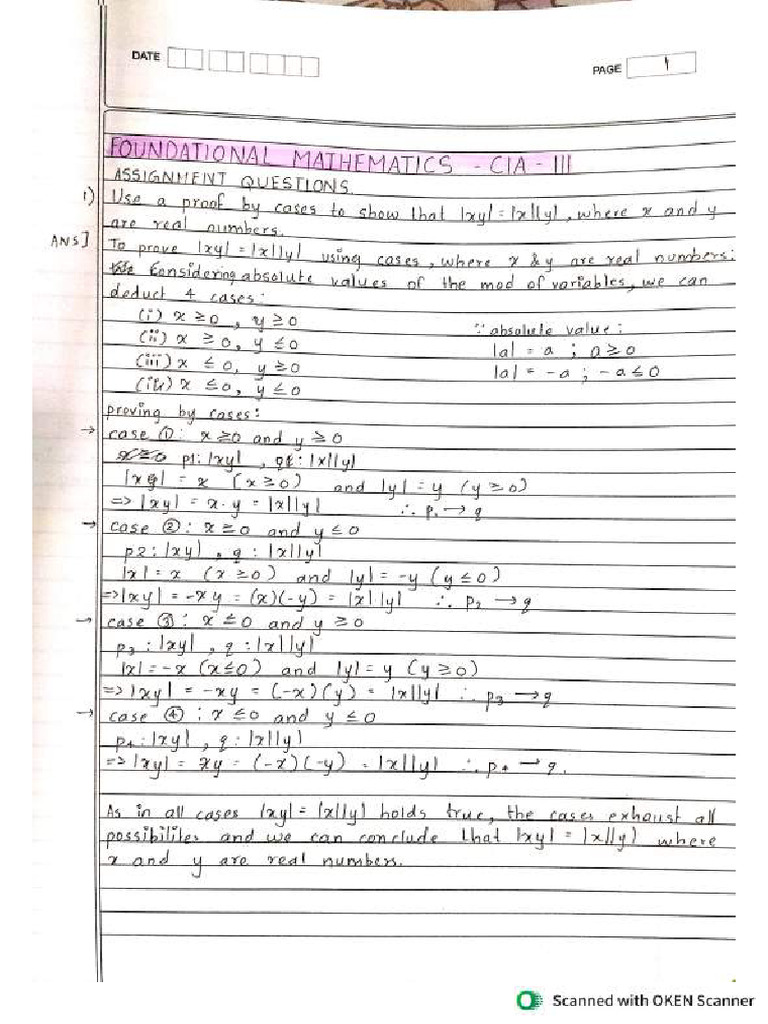 DATE
PAGE 1
FOUNDATIONAL MATHEMATICS - CIA - III
ASSIGNMENT QUESTIONS.
1) Use a proof by cases to show that |xy| = |x||y|, where x and y
are real numbers.
ANS] To prove |xy| = |x||y| using cases, where x & y are real numbers:
Considering absolute values of the mod of variables, we can
deduct 4 cases:
(i) x ≥ 0, y ≥ 0
(ii) x ≥ 0, y ≤ 0
(iii) x ≤ 0, y ≥ 0
(iv) x ≤ 0, y ≤ 0
∵ absolute value:
|a| = a ; a ≥ 0
|a| = -a ; -a ≤ 0
proving by cases:
→ case ①: x ≥ 0 and y ≥ 0
p1: |xy| , q: |x||y|
|x| = x (x ≥ 0) and |y| = y (y ≥ 0)
=> |xy| = x·y = |x||y| ∴ p₁ → q
→ case ②: x ≥ 0 and y ≤ 0
p2: |xy| , q: |x||y|
|x| = x (x ≥ 0) and |y| = -y (y ≤ 0)
=> |xy| = -xy = (x)(-y) = |x||y| ∴ p₂ → q
→ case ③: x ≤ 0 and y ≥ 0
p₃: |xy| , q: |x||y|
|x| = -x (x ≤ 0) and |y| = y (y ≥ 0)
=> |xy| = -xy = (-x)(y) = |x||y| ∴ p₃ → q
→ case ④: x ≤ 0 and y ≤ 0
p₄: |xy| , q: |x||y|
=> |xy| = xy = (-x)(-y) = |x||y| ∴ p₄ → q.
As in all cases |xy| = |x||y| holds true, the cases exhaust all
possibilites and we can conclude that |xy| = |x||y| where
x and y are real numbers.
Scanned with OKEN Scanner